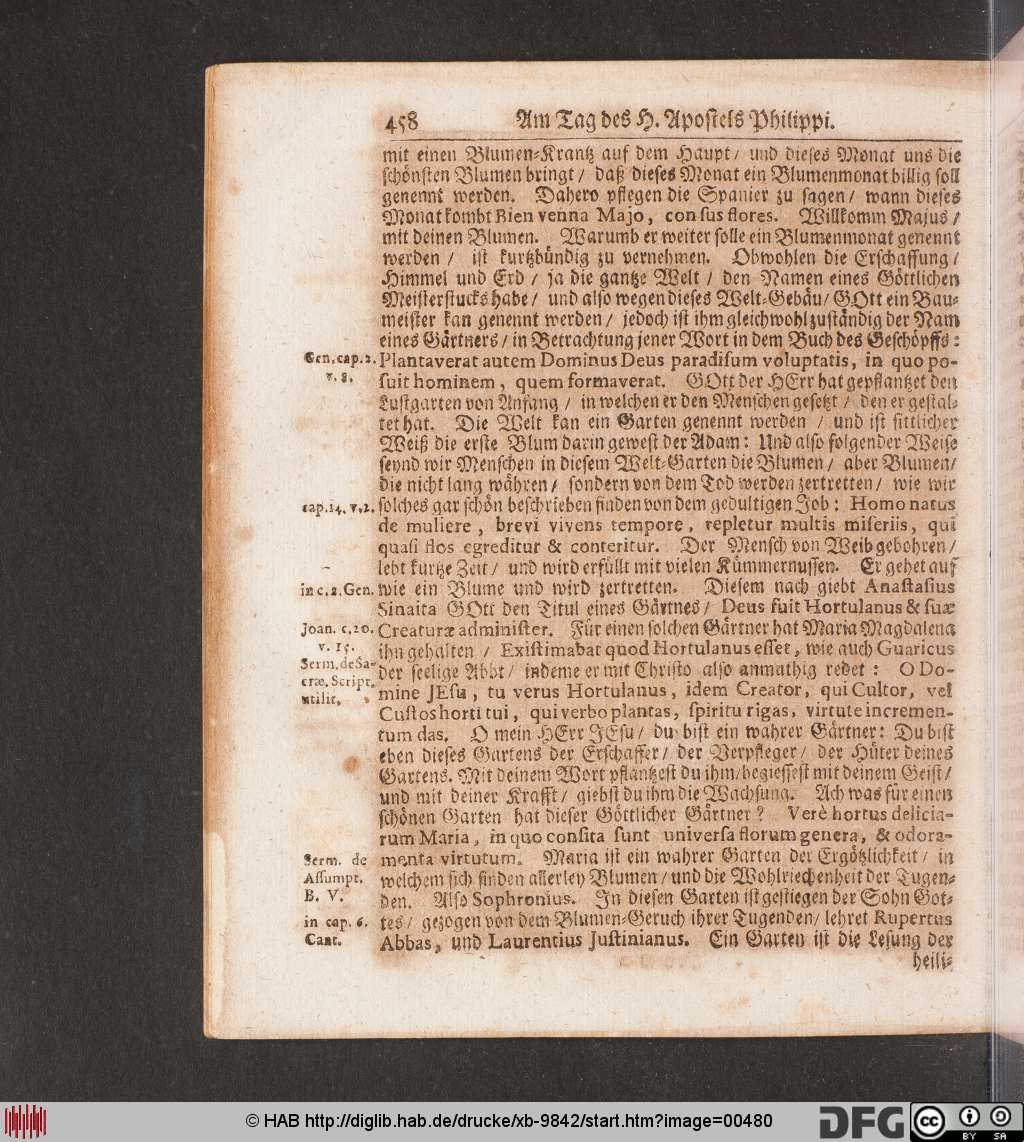 458 Am Tag des H. Apostels Philippi.
mit einen Blumen-Krantz auf dem Haupt / und dieses Monat uns die
schönsten Blumen bringt / daß dieses Monat ein Blumenmonat billig soll
genennt werden. Dahero pflegen die Spanier zu sagen / wann dieses
Monat kombt Bien venna Majo, con sus flores. Willkomm Majus /
mit deinen Blumen. Warumb er weiter solle ein Blumenmonat genennt
werden / ist kurtzbündig zu vernehmen. Obwohlen die Erschaffung /
Himmel und Erd / ja die gantze Welt / den Namen eines Göttlichen
Meisterstucks habe / und also wegen dieses Welt-Gebäu / GOtt ein Bau-
meister kan genennt werden / jedoch ist ihm gleichwohl zuständig der Nam
eines Gärtners / in Betrachtung jener Wort in dem Buch des Geschöpffs:
Gen. cap. 2. Plantaverat autem Dominus Deus paradisum voluptatis, in quo po-
v. 8. suit hominem, quem formaverat. GOtt der HErr hat gepflantzet den
Lustgarten von Anfang / in welchen er den Menschen gesetzt / den er gestal-
tet hat. Die Welt kan ein Garten genennt werden / und ist sittlicher
Weiß die erste Blum darin gewest der Adam: Und also folgender Weise
seynd wir Menschen in diesem Welt-Garten die Blumen / aber Blumen /
die nicht lang währen / sondern von dem Tod werden zertretten / wie wir
cap. 14. v. 2. solches gar schön beschrieben finden von dem gedultigen Job: Homo natus
de muliere, brevi vivens tempore, repletur multis miseriis, qui
quasi flos egreditur & conteritur. Der Mensch von Weib gebohren /
lebt kurtze Zeit / und wird erfüllt mit vielen Kümmernussen. Er gehet auf
in c. 2. Gen. wie ein Blume und wird zertretten. Diesem nach giebt Anastasius
Sinaita GOtt den Titul eines Gärtnes / Deus fuit Hortulanus & suæ
Joan. c. 20. Creaturæ administer. Für einen solchen Gärtner hat Maria Magdalena
v. 15. ihn gehalten / Existimabat quod Hortulanus esset, wie auch Guaricus
Serm. de Sa- der seelige Abbt / indeme er mit Christo also anmuthig redet: O Do-
cræ. Script. mine JEsu, tu verus Hortulanus, idem Creator, qui Cultor, vel
utilit. Custos horti tui, qui verbo plantas, spiritu rigas, virtute incremen-
tum das. O mein HErr JEsu / du bist ein wahrer Gärtner: Du bist
eben dieses Gartens der Erschaffer / der Verpfleger / der Hüter deines
Gartens. Mit deinem Wort pflantzest du ihm / begiessest mit deinem Geist /
und mit deiner Krafft / giebst du ihm die Wachsung. Ach was für einen
schönen Garten hat dieser Göttlicher Gärtner? Verè hortus delicia-
rum Maria, in quo consita sunt universa florum genera, & odora-
Serm. de menta virtutum. Maria ist ein wahrer Garten der Ergötzlichkeit / in
Assumpt. welchem sich finden allerley Blumen / und die Wohlriechenheit der Tugen-
B. V. den. Also Sophronius. In diesen Garten ist gestiegen der Sohn Got-
in cap. 6. tes / gezogen von dem Blumen-Geruch ihrer Tugenden / lehret Rupertus
Cant. Abbas, und Laurentius Justinianus. Ein Garten ist die Lesung der
heili-
© HAB http://diglib.hab.de/drucke/xb-9842/start.htm?image=00480
DFG
cc BY SA